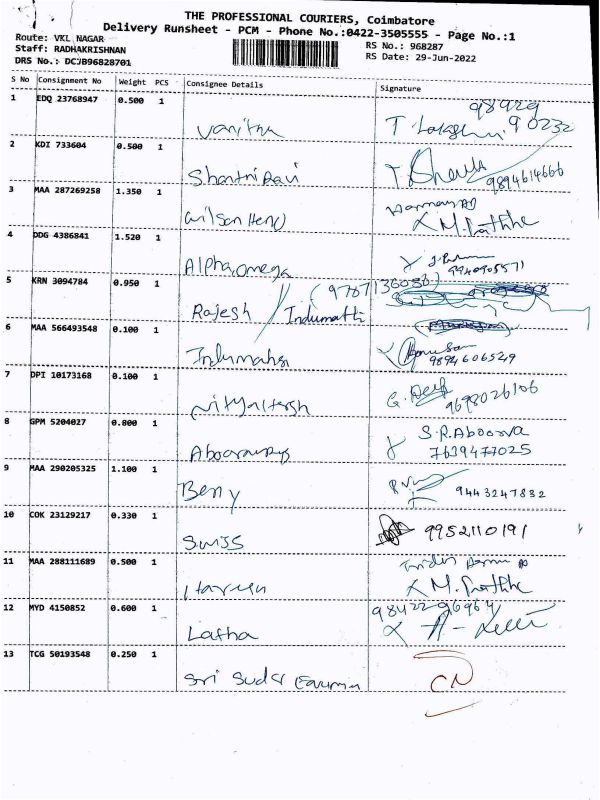 THE PROFESSIONAL COURIERS, Coimbatore
Delivery Runsheet - PCM - Phone No.:0422-3505555 - Page No.:1
Route: VKL NAGAR
RS No.: 968287
Staff: RADHAKRISHNAN
RS Date: 29-Jun-2022
DRS No.: DCJB96828701
S No Consignment No Weight PCS Consignee Details Signature
1 EDQ 23768947 0.500 1 Vanitha 98929 90232
2 KDI 733604 0.500 1 Shanthi Ravi 9894614666
3 MAA 287269258 1.350 1 Wilson
4 DDG 4386841 1.520 1 Alpha omega
5 KRN 3094784 0.950 1 Rajesh / Indumathi (9787136088)
6 MAA 566493548 0.100 1 9894606529
7 DPI 10173168 0.100 1 9698026106
8 GPM 5204027 0.800 1 S.R.Aboorva
7639477025
9 MAA 290205325 1.100 1 Beny 9443247832
10 COK 23129217 0.330 1 9952110191
11 MAA 288111689 0.500 1
12 MYD 4150852 0.600 1 Latha
13 TCG 50193548 0.250 1 Sri CN